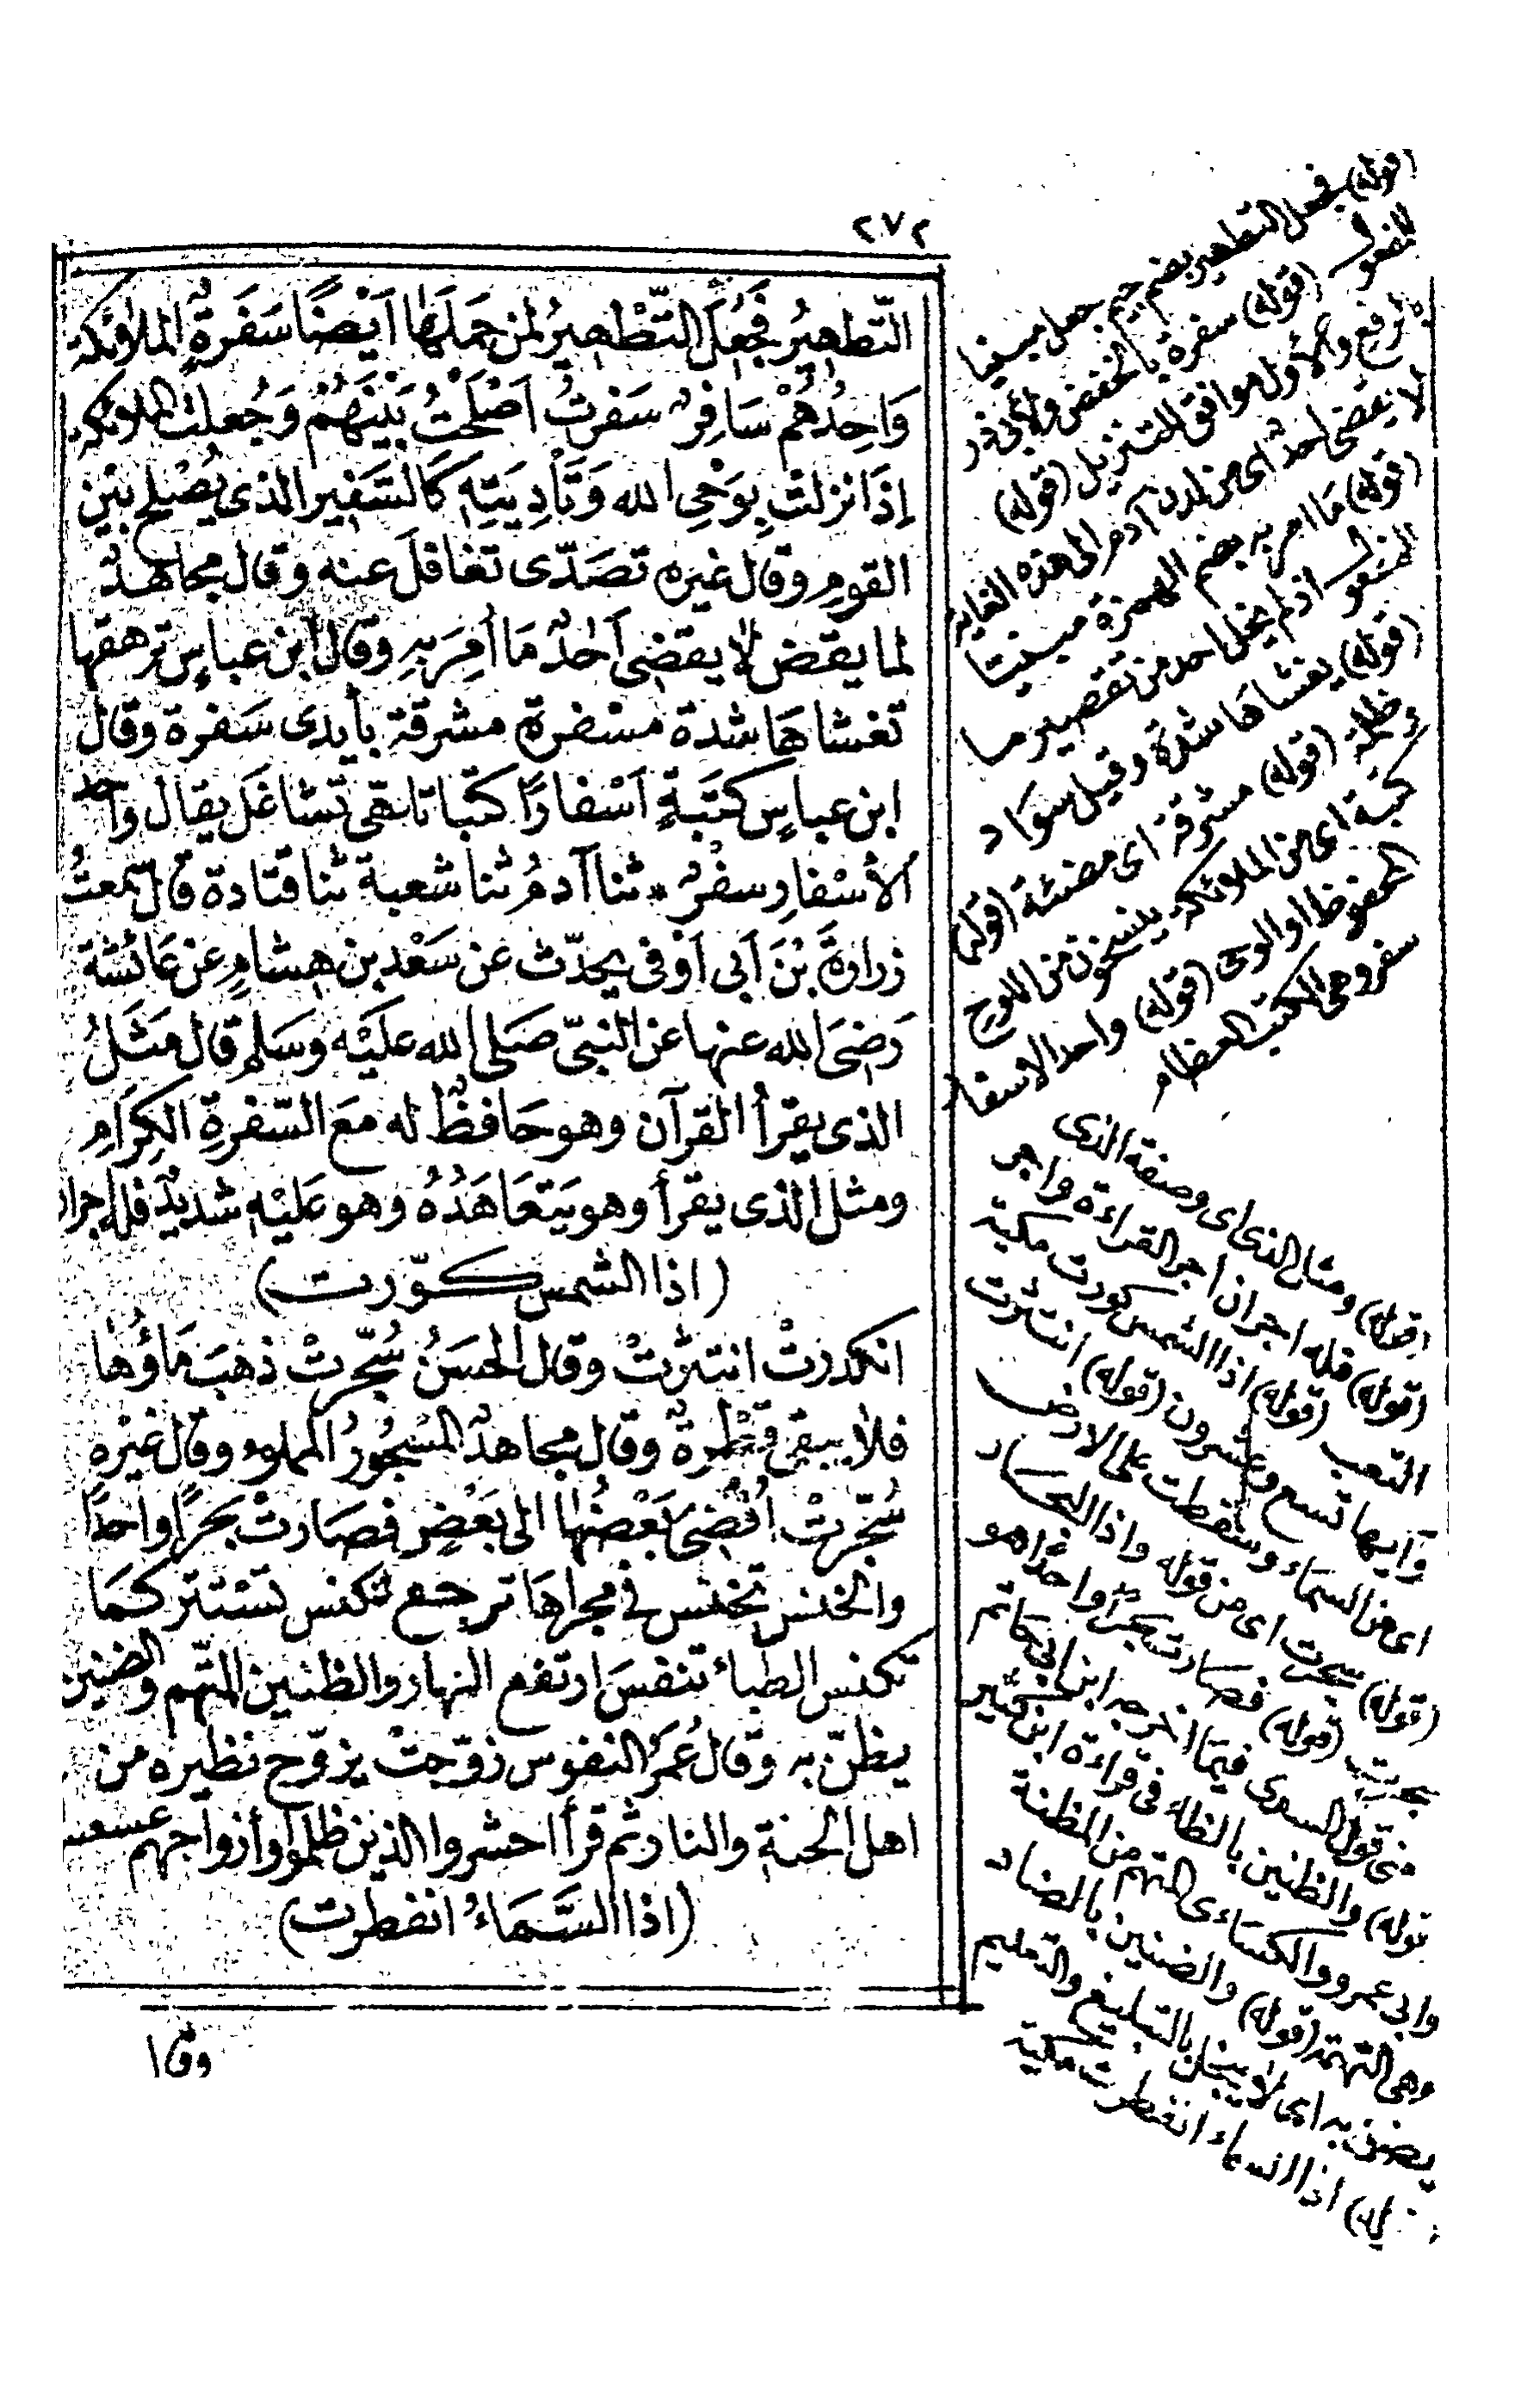 ٢٧٢
التّطهيرُ فَجُعِلَ التّطْهيرُ لمن حَمَلَهَا اَيْضًا سَفَرَةٍ الملائكة
وَاحِدُهُمْ سَافِرٌ سَفرتُ اَصْلَحْتُ بَيْنَهُمْ وَجُعلت الملائكة
إذَا نزلتْ بِوَحْىِ الله وَتَأدِيَتِهِ كَالسَّفِيرِ الذى يُصْلح بَيْن
القومِ وقال غيره تصَدّى تغافلَ عنه وقال مجاهدٌ
لما يقض لا يقضى اَحَدٌ مَا اُمِرَ بهِ وقال ابن عباسٍ ترهقها
تغشاهَا شدة مسْفرة مشرقة بأيدى سَفرة وقال
ابن عباسٍ كتَبَةٍ اَسْفارًا كتبًا تلهى تشاغلَ يقال واحد
الأسْفارِ سفْرٌ * ثنا آدمُ ثنا شعبة ثنا قتادة قال سمعتُ
زرارةَ بْنَ اَبى اَوْفى يحدّث عن سَعْدِ بن هشامٍ عن عَائشة
رَضىَ الله عنها عن النبىّ صَلى الله عليْه وَسَلم قال مَثَلُ
الذى يقرأ القرآن وهو حَافظٌ له مَع السّفرةِ الكِرَامِ
ومثل الذى يقرأ وهو يَتعَاهَدُهُ وهو عَليْه شديدٌ فله اجران
(اذا الشمس كوّرت)
انكدرتْ انتثرتْ وقال الحسَنُ سُجّرتْ ذهبَ مَاؤُها
فلا يبقى قطْرةٌ وقال مجاهدٌ المسْجُورُ المملوء وقال غيْره
سُجّرتْ اُفْضىَ بَعْضُهَا الى بَعْضٍ فصَارتْ بحرًا واحدًا
والخنس تخنس فى مجراهَا ترجع تكنس تستتر كمَا
تكنس الظباء تنفسَ ارتفع النهار والظنين المتّهم والضنين
يضنّ به وقال عُمَرُ النفوس زوّجتْ يزوّج نظيره من
اهل الجنة والنار ثم قرأ احشروا الذين ظلموا وأزواجهم عسعس
(اذا السَّمَاءُ انفطرت)
وقال
(قوله) فجعل التطهير بضم جيم جعل مبنيا
للمفعول (قوله) سفرة بالخفض ولأبى ذر
بالرفع والأول موافق للتنزيل (قوله)
لا يقضى احد اى من لدن آدم الى هذه الغاية
(قوله) ما امر به بضم الهمزة مبنيا
للمفعول اذ لم يخل احد من تقصير ما
(قوله) يغشاها شدة وقيل سواد
وظلمة (قوله) مشرقة اى مضيئة (قوله)
كتبة اى من الملائكة ينسخون من اللوح
المحفوظ او الوحى (قوله) واحد الاسفار
سفر وهى الكتب العظام
(قوله) ومثل الذى اى وصفة الذى
(قوله) فله اجران اجر القراءة واجر
التعب (قوله) اذا الشمس كورت مكية
وآيها تسع وعشرون (قوله) انتثرت
اى من السماء وسقطت على الارض
(قوله) سجرت اى من قوله واذا البحار
سجرت (قوله) فصارت بحرا واحدا هو
من قول السدى فيما اخرجه ابن ابى حاتم
(قوله) والظنين بالظاء فى قراءة ابن كثير
وابى عمرو والكسائى المتهم من الظنة
وهى التهمة (قوله) والضنين بالضاد
يضن به اى لا يبخل بالتبليغ والتعليم
(قوله) اذا السماء انفطرت مكية